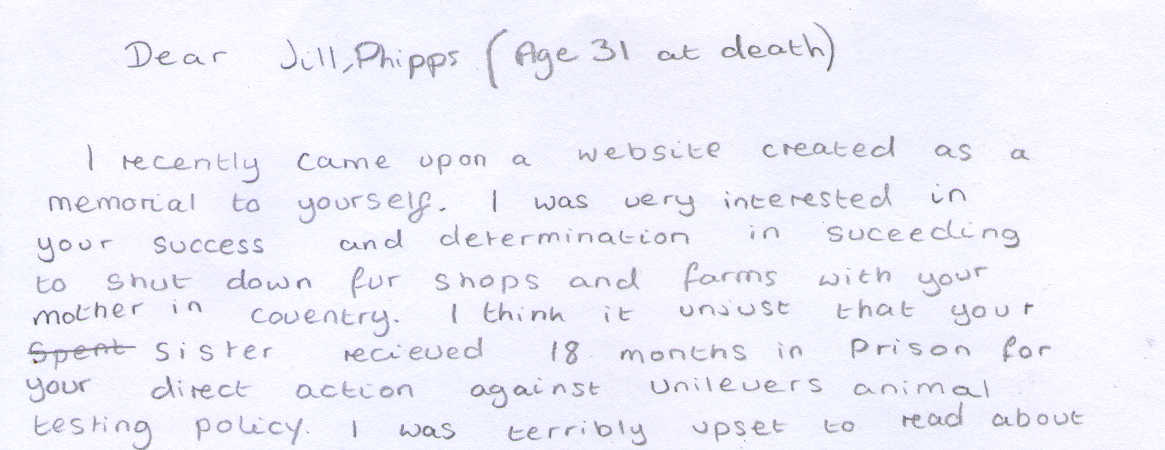 Dear Jill, Phipps (Age 31 at death)
I recently came upon a website created as a
memorial to yourself. I was very interested in
your success and determination in suceeding
to shut down fur shops and farms with your
mother in coventry. I think it unjust that your
Spent sister recieved 18 months in Prison for
your direct action against unilevers animal
testing policy. I was terribly upset to read about